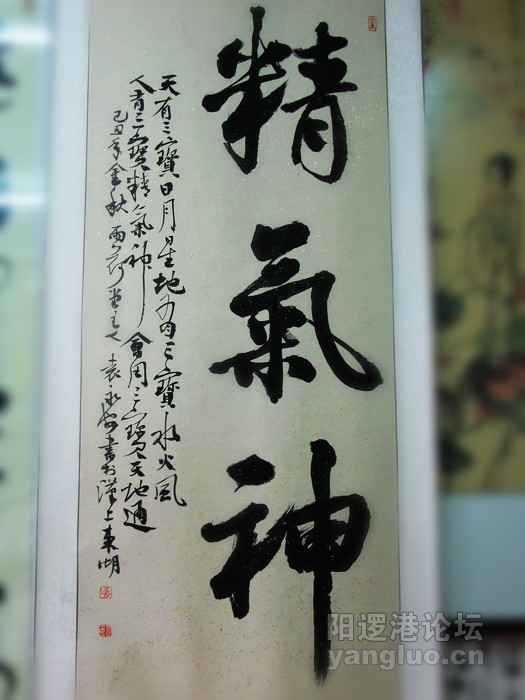 精氣神
天有三寶日月星地有三寶水火風
人有三寶精氣神會用三寶天地通
己丑年金秋雨荷堂主人袁承安書於漢上東湖
阳逻港论坛
yangluo.cn